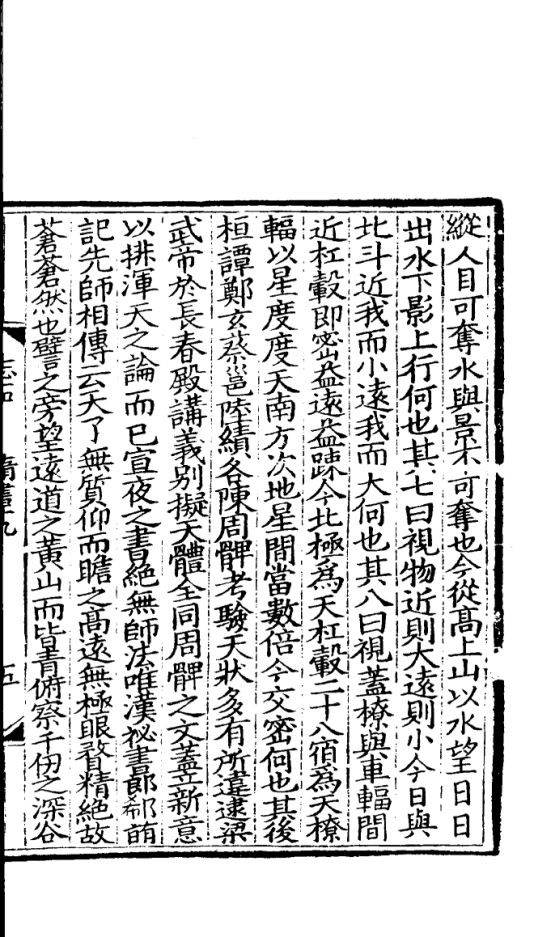 縱人目可奪水與景不可奪也今從高上山以水望日日
出水下影上行何也其七曰視物近則大遠則小今日與
北斗近我而小遠我而大何也其八曰視蓋橑與車輻間
近杠轂即密益遠益踈今北極為天杠轂二十八宿為天橑
輻以星度度天南方次地星間當數倍今交密何也其後
桓譚鄭玄蔡邕陸績各陳周髀考驗天狀多有所違逮梁
武帝於長春殿講義別擬天體全同周髀之文蓋立新意
以排渾天之論而已宣夜之書絕無師法唯漢祕書郎郗萌
記先師相傳云天了無質仰而瞻之高遠無極眼瞀精絕故
蒼蒼然也譬之旁望遠道之黃山而皆青俯察千仞之深谷
五